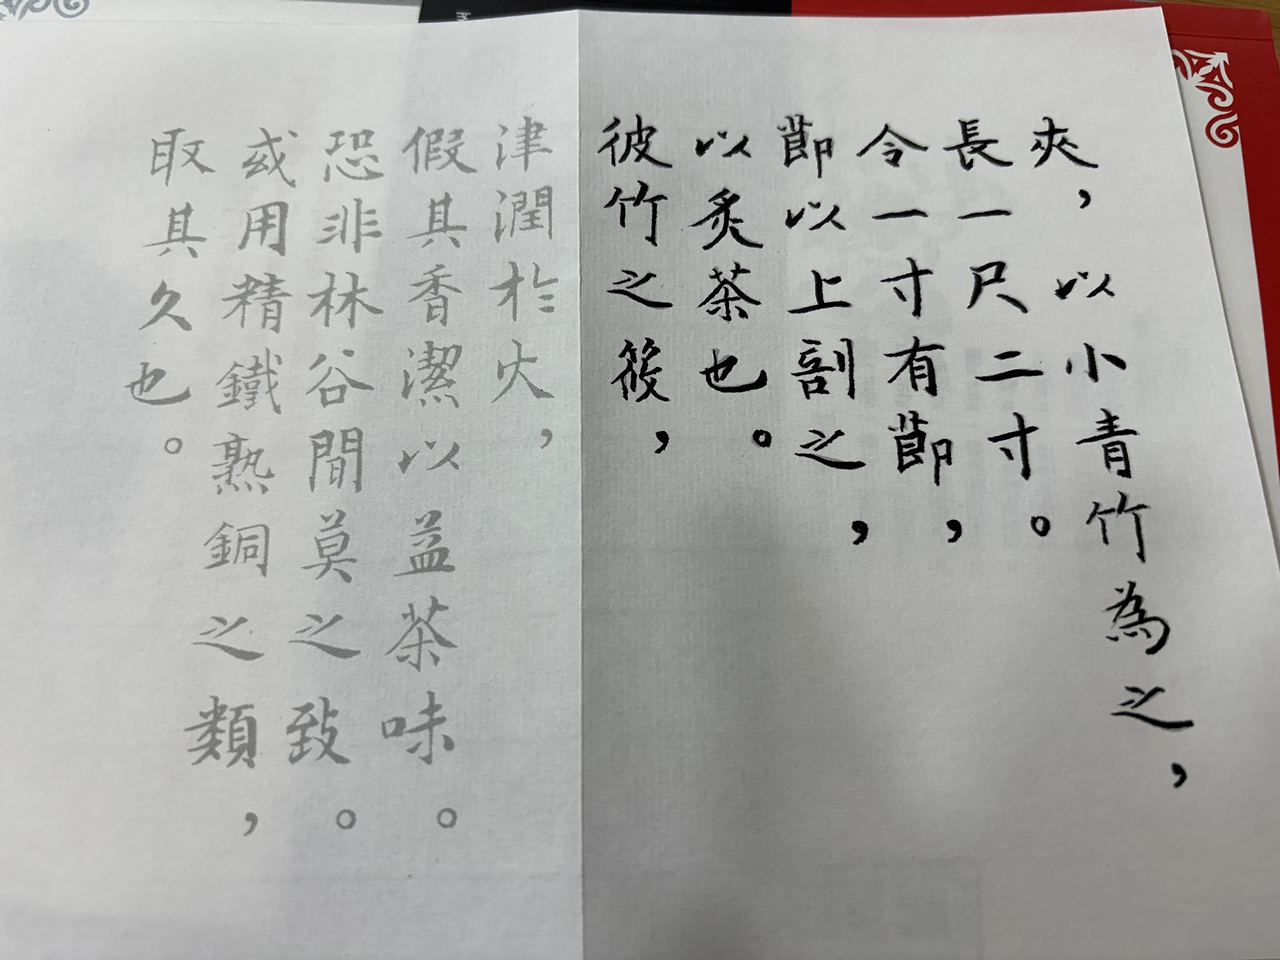 夾，以小青竹為之，
長一尺二寸。
令一寸有節，
節以上剖之，
以炙茶也。
彼竹之筱，
津潤於火，
假其香潔以益茶味。
恐非林谷間莫之致。
或用精鐵熟銅之類，
取其久也。